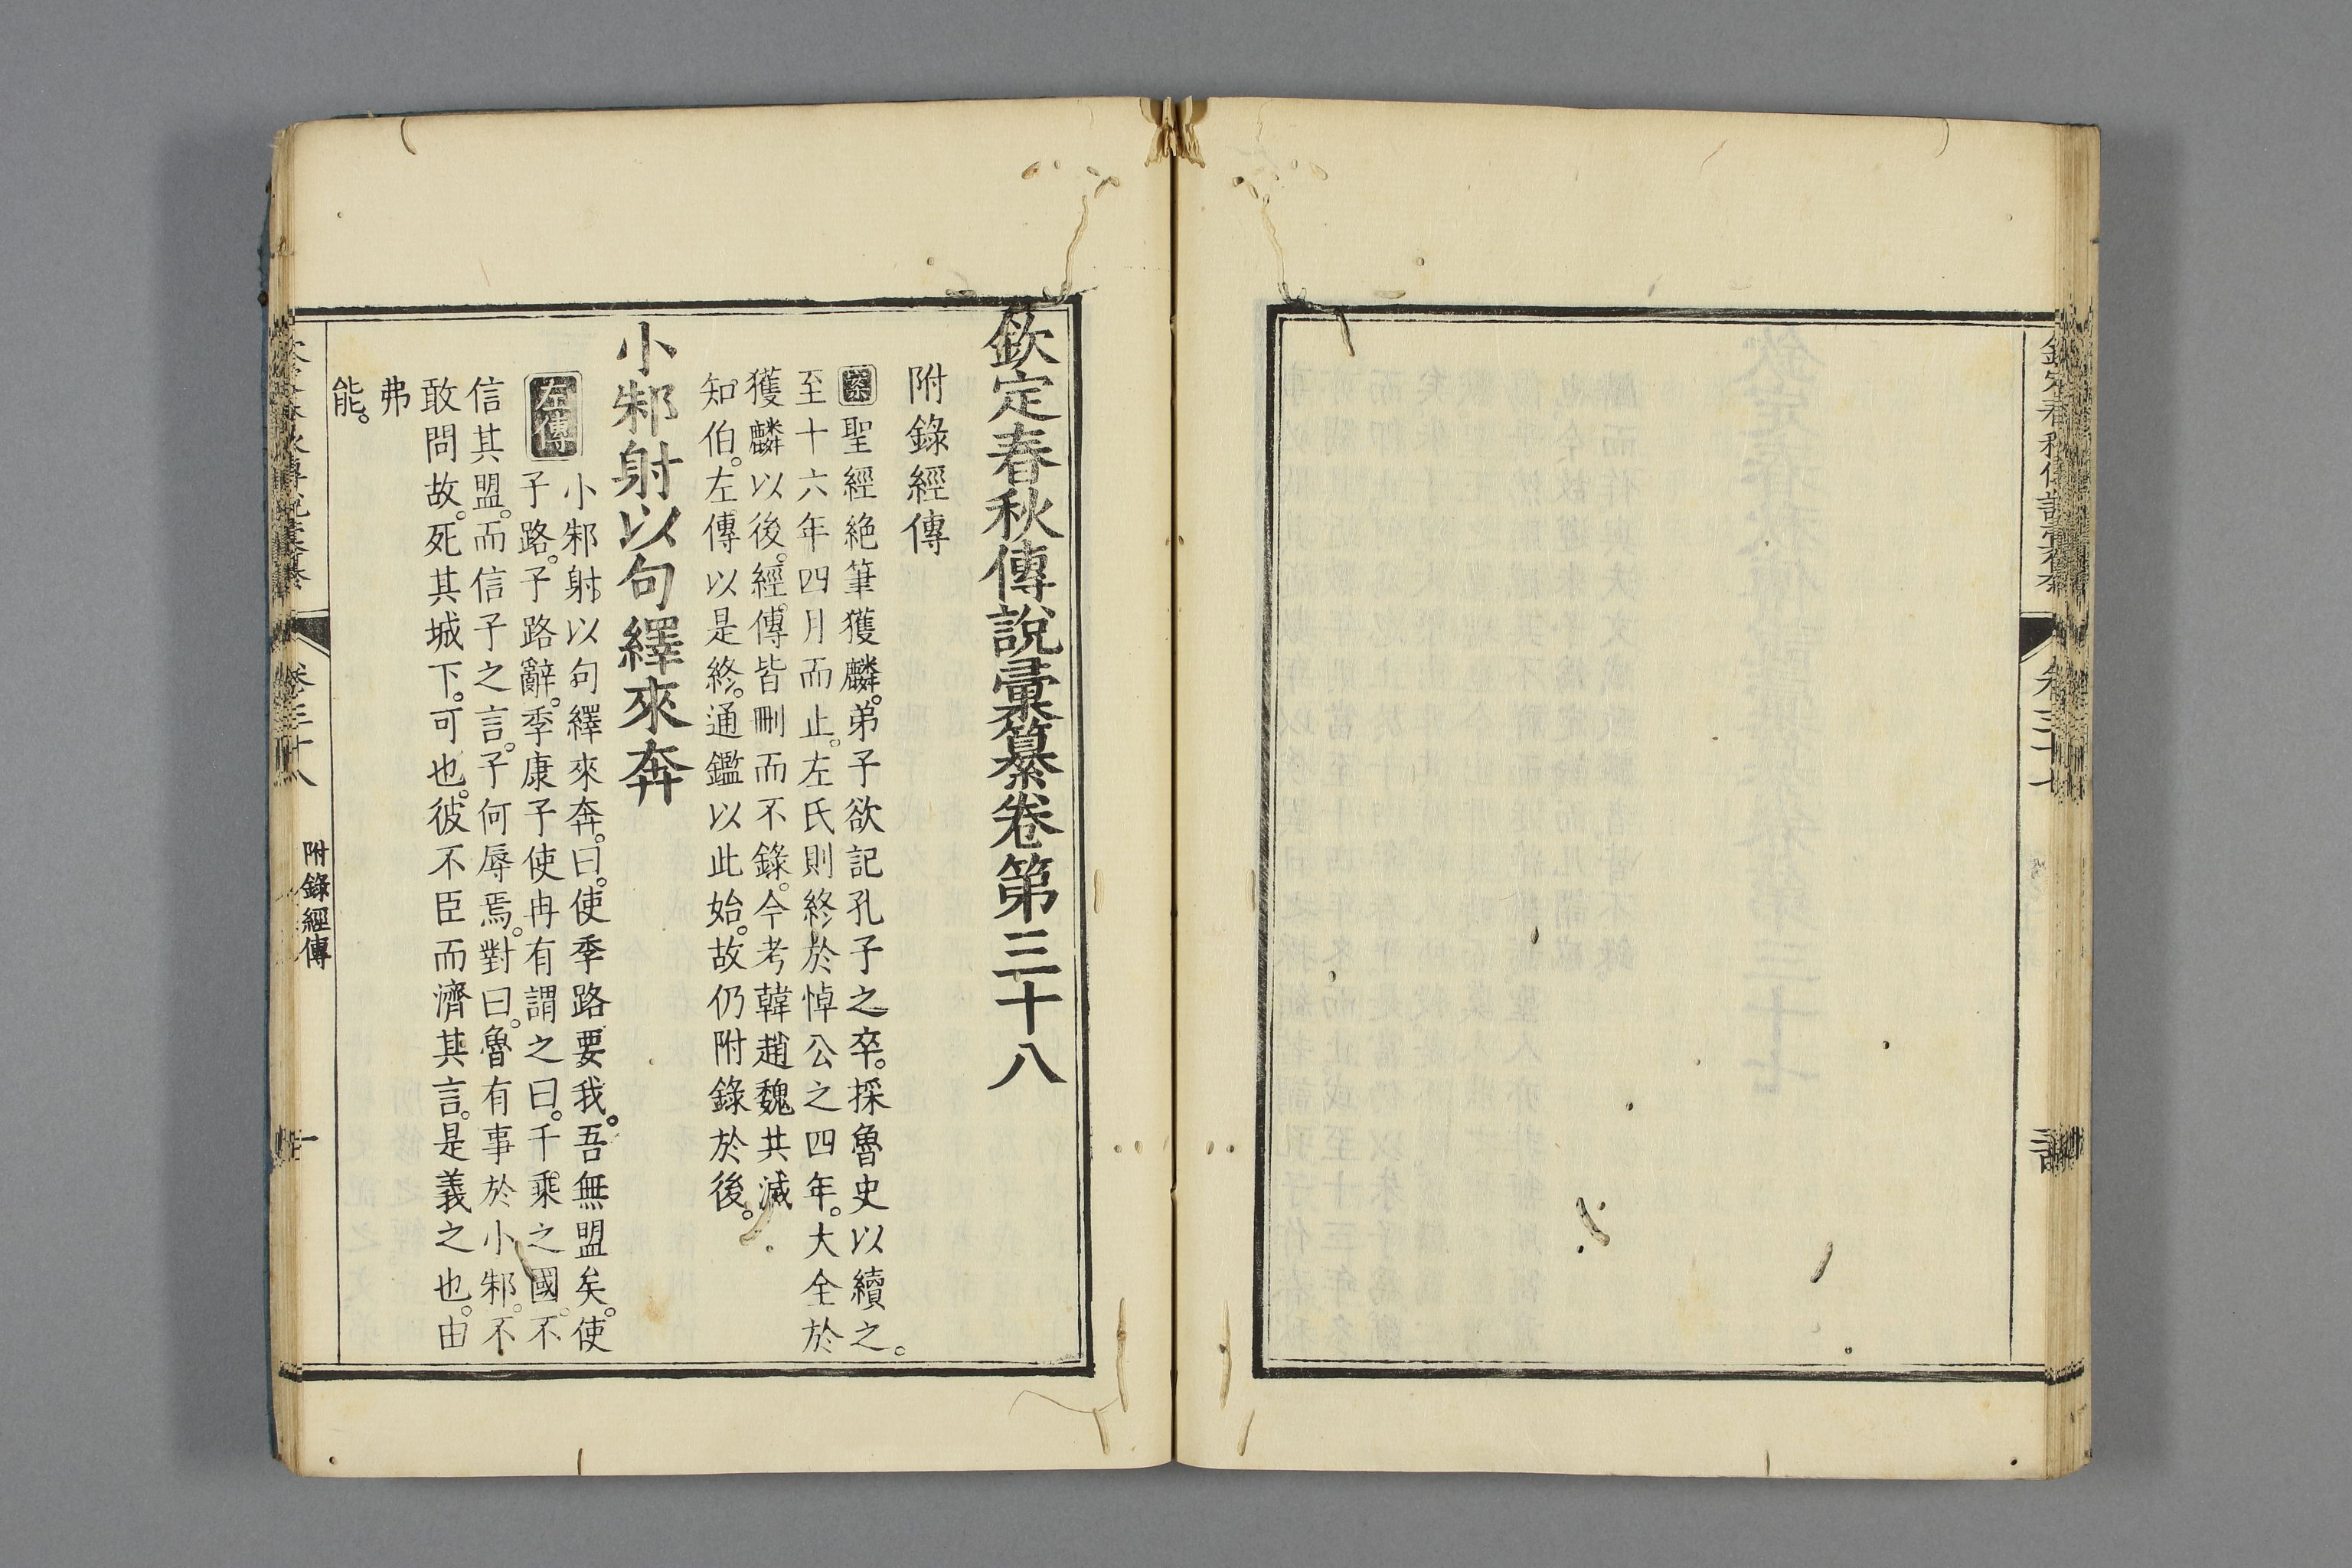 欽定春秋傳說彙纂卷第三十八
附錄經傳
案聖經絶筆獲麟。弟子欲記孔子之卒。採魯史以續之。
至十六年四月而止。左氏則終於悼公之四年。大全於
獲麟以後。經傳皆刪而不錄。今考韓趙魏共滅
知伯。左傳以是終。通鑑以此始。故仍附錄於後。
小邾射以句繹來奔
左傳
小邾射以句繹來奔。曰。使季路要我。吾無盟矣。使
子路。子路辭。季康子使冉有謂之曰。千乘之國。不
信其盟。而信子之言。子何辱焉。對曰。魯有事於小邾。不
敢問故。死其城下。可也。彼不臣而濟其言。是義之也。由
弗
能。
卷三十八
附錄經傳
一